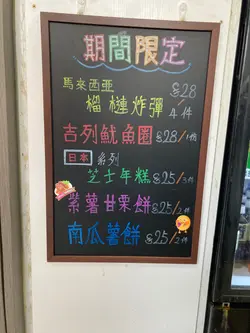 期間限定
馬來西亞 $28/4件
榴槤炸彈
吉列魷魚圈 $28/1件
日本 系列
芝士年糕 $25/3件
紫薯甘栗餅 $25/2件
南瓜薯餅 $25/2件